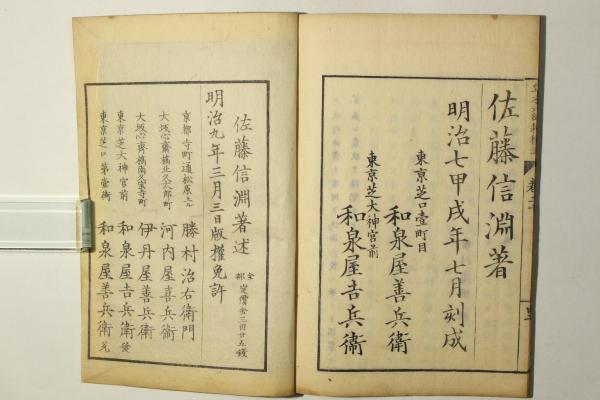 佐藤信淵著
明治七甲戌年七月刻成
東京芝口壹町目
和泉屋善兵衛
東京芝大神宮前
和泉屋吉兵衞
佐藤信淵著述
全部
定價金三円廿五錢
明治九年三月三日版權免許
京都寺町通松原
勝村治右衛門
大坂心齋橋北久太郎町
河内屋喜兵衞
大坂心齋橋南久宝寺町
伊丹屋善兵衛
東京芝大神宮前
和泉屋吉兵衛
東京芝口第壹街
和泉屋善兵衛